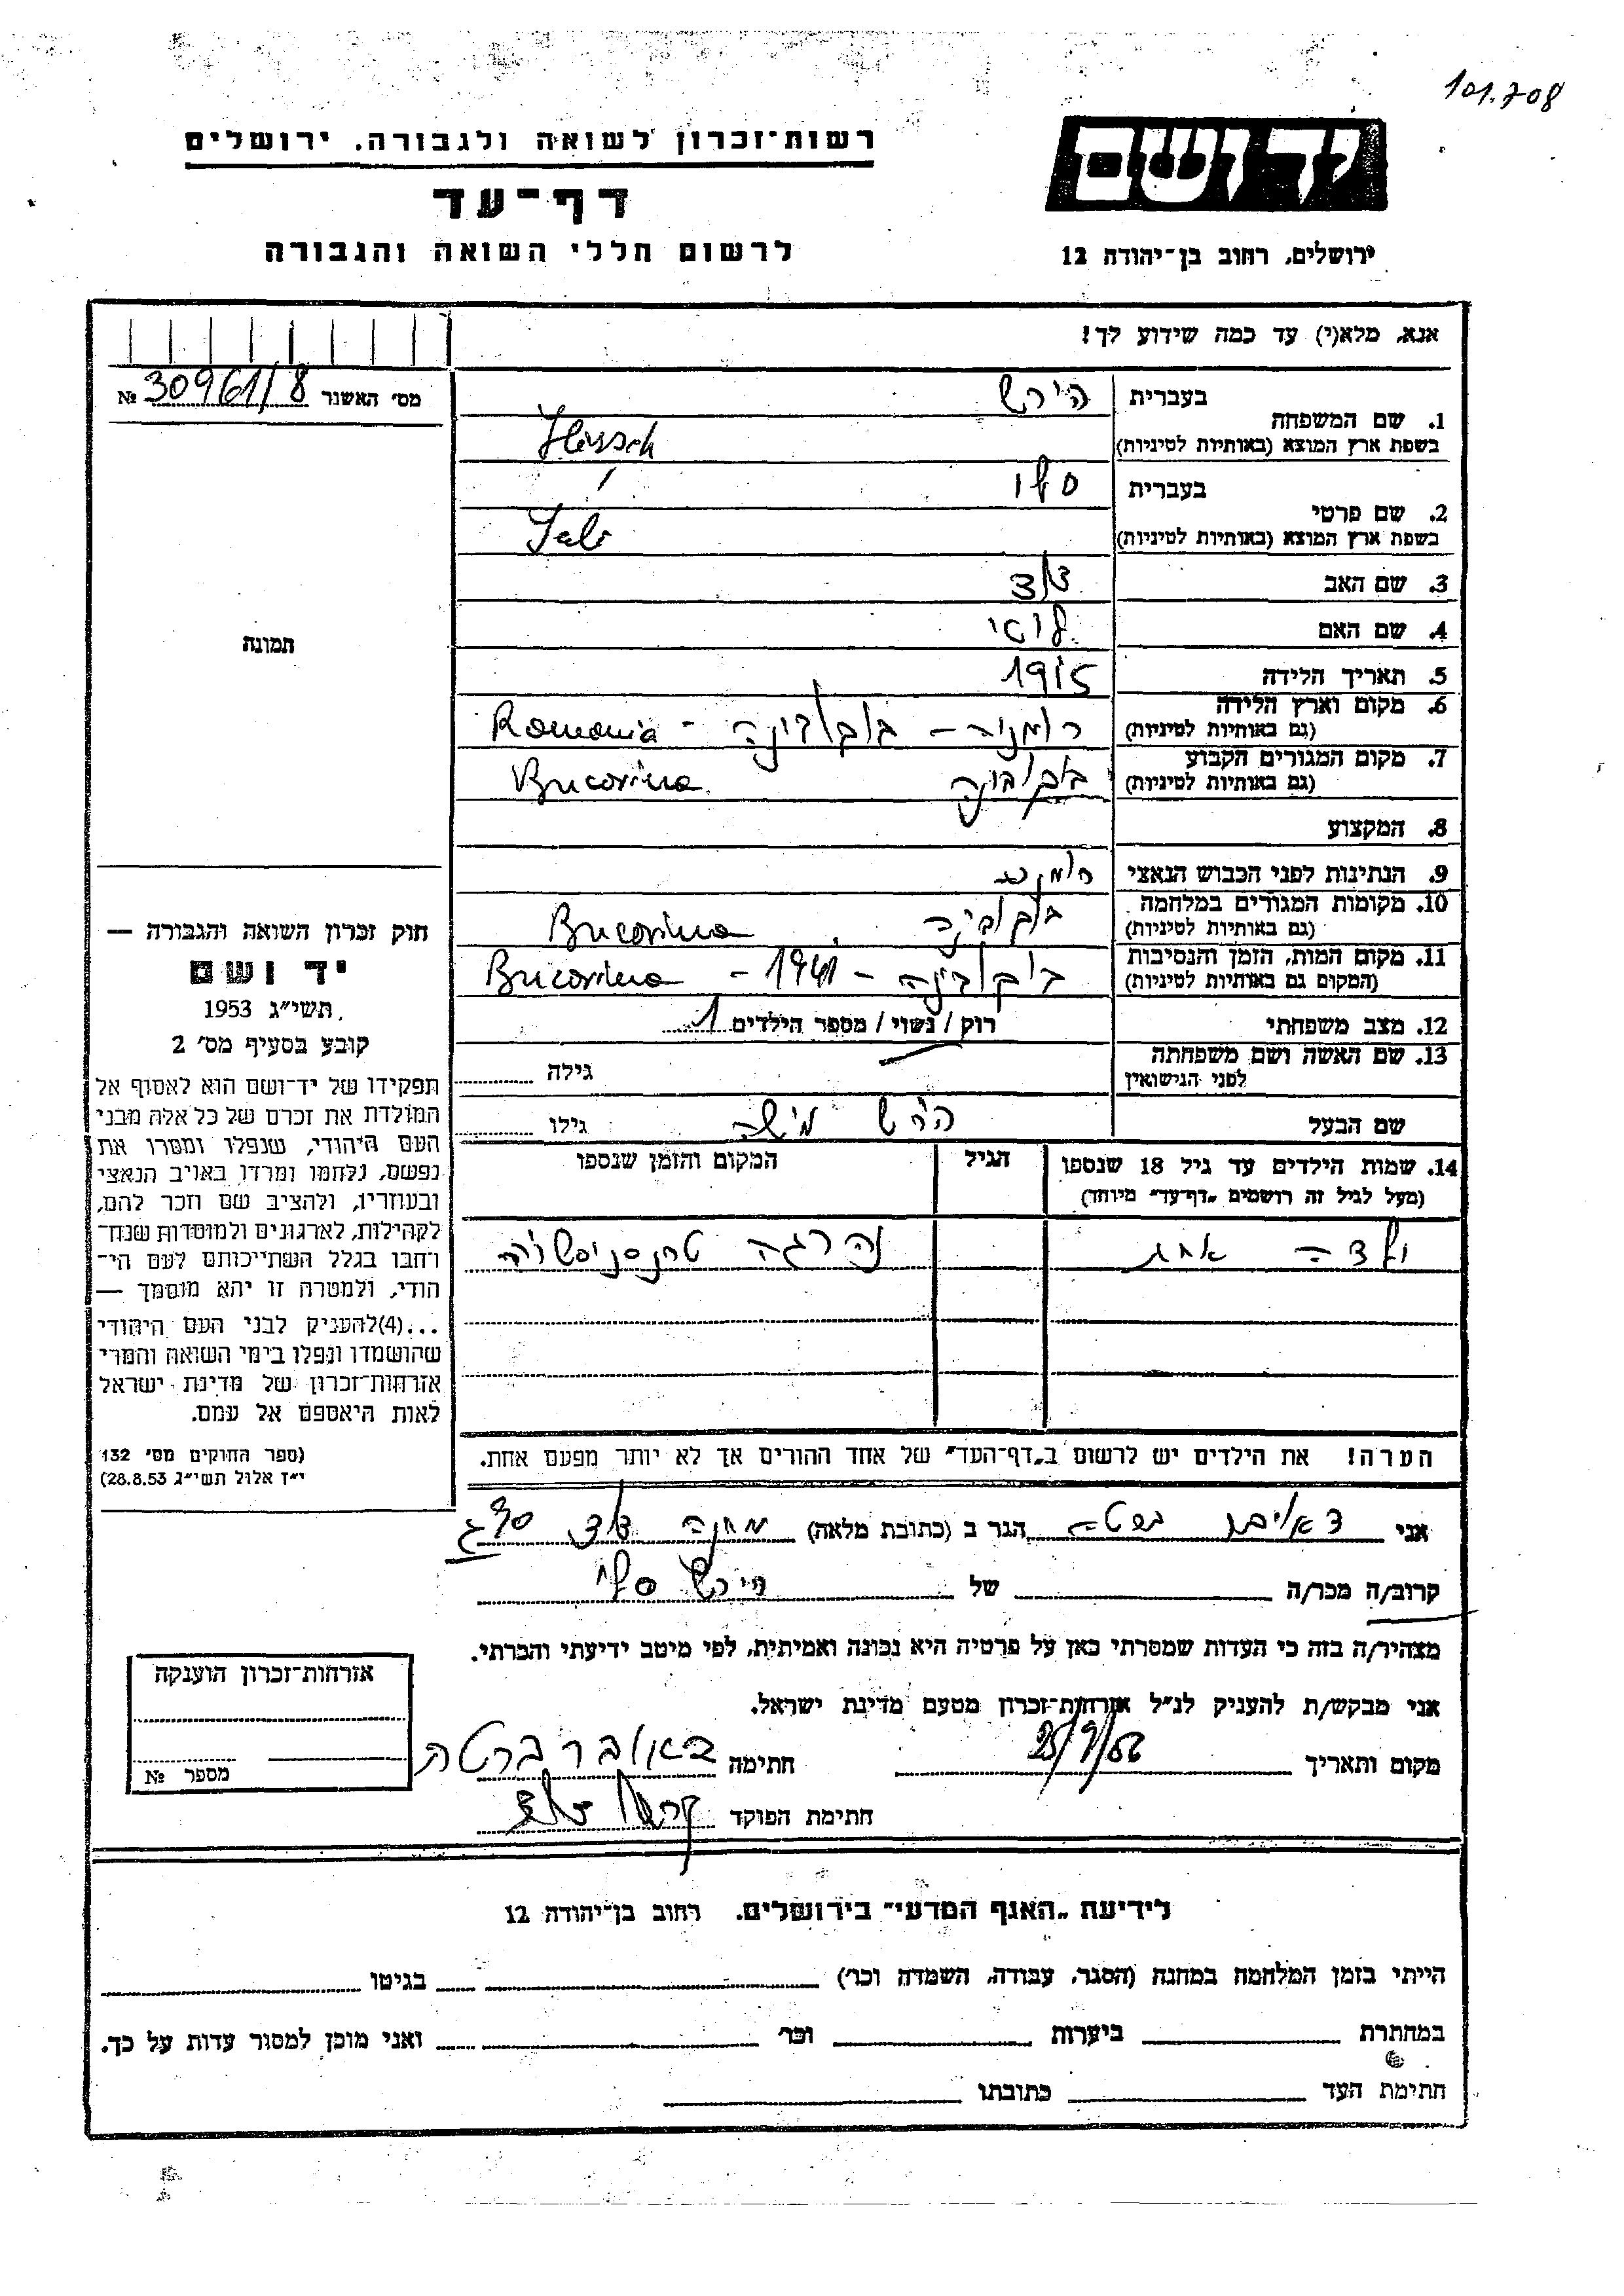 101.708
רשות־זכרון לשואה ולגבורה, ירושלים
יד ושם
דף־עד
לרשום חללי השואה והגבורה
ירושלים, רחוב בן־יהודה 12
אנא, מלא(י) עד כמה שידוע לך!
מס׳ האשור № 30961/8
1. שם המשפחה בעברית הירש
בשפת ארץ המוצא (באותיות לטיניות) Hirsch
2. שם פרטי בעברית סלי
בשפת ארץ המוצא (באותיות לטיניות) Sali
3. שם האב
4. שם האם
5. תאריך הלידה 1915
6. מקום וארץ הלידה רומניה – בוקובינה - Romania
(גם באותיות לטיניות)
7. מקום המגורים הקבוע בוקובינה Bucovina
(גם באותיות לטיניות)
8. המקצוע
9. הנתינות לפני הכבוש הנאצי רומנית
10. מקומות המגורים במלחמה בוקובינה Bucovina
(גם באותיות לטיניות)
11. מקום המות, הזמן והנסיבות בוקובינה – 1941 – Bucovina
(המקום גם באותיות לטיניות)
12. מצב משפחתי רוק / נשוי / מספר הילדים 1
13. שם האשה ושם משפחתה גילה
לפני הנישואין
שם הבעל הירש משה גילו
14. שמות הילדים עד גיל 18 שנספו הגיל המקום והזמן שנספו
(מעל לגיל זה רושמים „דף־עד״ מיוחד)
ילדה אחת נהרגה טרנסניסטריה
הערה! את הילדים יש לרשום ב„דף־העד״ של אחד ההורים אך לא יותר מפעם אחת.
תמונה
חוק זכרון השואה והגבורה —
יד ושם
תשי״ג 1953
קובע בסעיף מס׳ 2
תפקידו של יד־ושם הוא לאסוף אל
המולדת את זכרם של כל אלה מבני
העם היהודי, שנפלו ומסרו את
נפשם, נלחמו ומרדו באויב הנאצי
ובעוזריו, ולהציב שם וזכר להם,
לקהילות, לארגונים ולמוסדות שנח־
רחבו בגלל השתייכותם לעם הי־
הודי, ולמטרה זו יהא מוסמך —
...(4)להעניק לבני העם היהודי
שהושמדו ונפלו בימי השואה והמרי
אזרחות־זכרון של מדינת ישראל
לאות היאספם אל עמם.
(ספר החוקים מס׳ 132
י״ז אלול תשי״ג 28.8.53)
אני ברטה הגר ב (כתובת מלאה) מחנה
קרוב/ה מכר/ה של הירש סלי
מצהיר/ה בזה כי העדות שמסרתי כאן על פרטיה היא נכונה ואמיתית, לפי מיטב ידיעתי והכרתי.
אני מבקש/ת להעניק לנ״ל אזרחות־זכרון מטעם מדינת ישראל.
מקום ותאריך חתימה באובר ברטה
חתימת הפוקד
אזרחות־זכרון הוענקה
מספר №
לידיעת „האגף המדעי״ בירושלים, רחוב בן־יהודה 12
הייתי בזמן המלחמה במחנה (הסגר, עבודה, השמדה וכו׳) בגיטו
במחתרת ביערות וכו׳ ואני מוכן למסור עדות על כך.
חתימת העד כתובתו